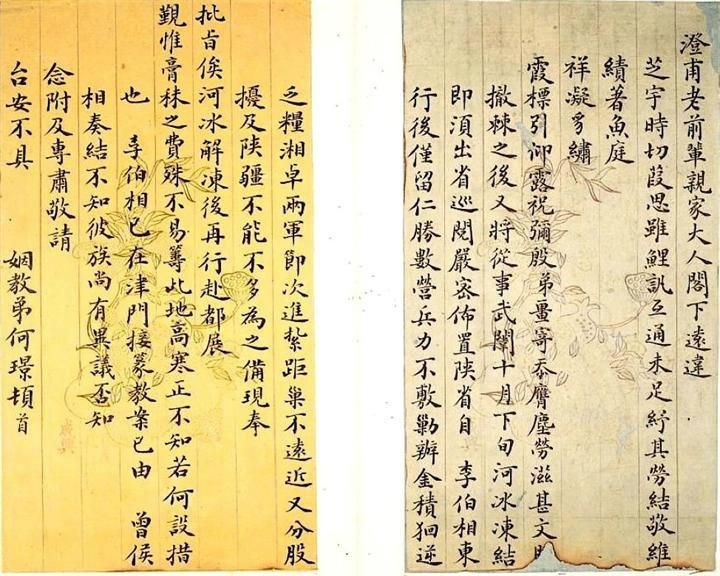 澄甫老前輩親家大人閣下遠違
芝宇時切葭思雖鯉訊互通未足紓其勞結敬維
績著魚庭
祥凝豸繡
霞標引仰露祝彌殷弟畺寄忝膺塵勞滋甚文闈
撤棘之後又將從事武闈十月下旬河冰凍結
即須出省巡閱嚴密佈置陝省自 李伯相東
行後僅留仁勝數營兵力不敷勦辦金積狪逆
乏糧湘卓兩軍即次進紮距巢不遠近又分股
擾及陝疆不能不多為之備現奉
批旨俟河冰解凍後再行赴都展
覲惟膏秣之費殊不易籌此地高寒正不知若何設措
也 李伯相已在津門接篆教案已由 曾侯
相奏結不知彼族尚有異議否知
念附及專肅敬請
台安不具 姻教弟何璟頓首